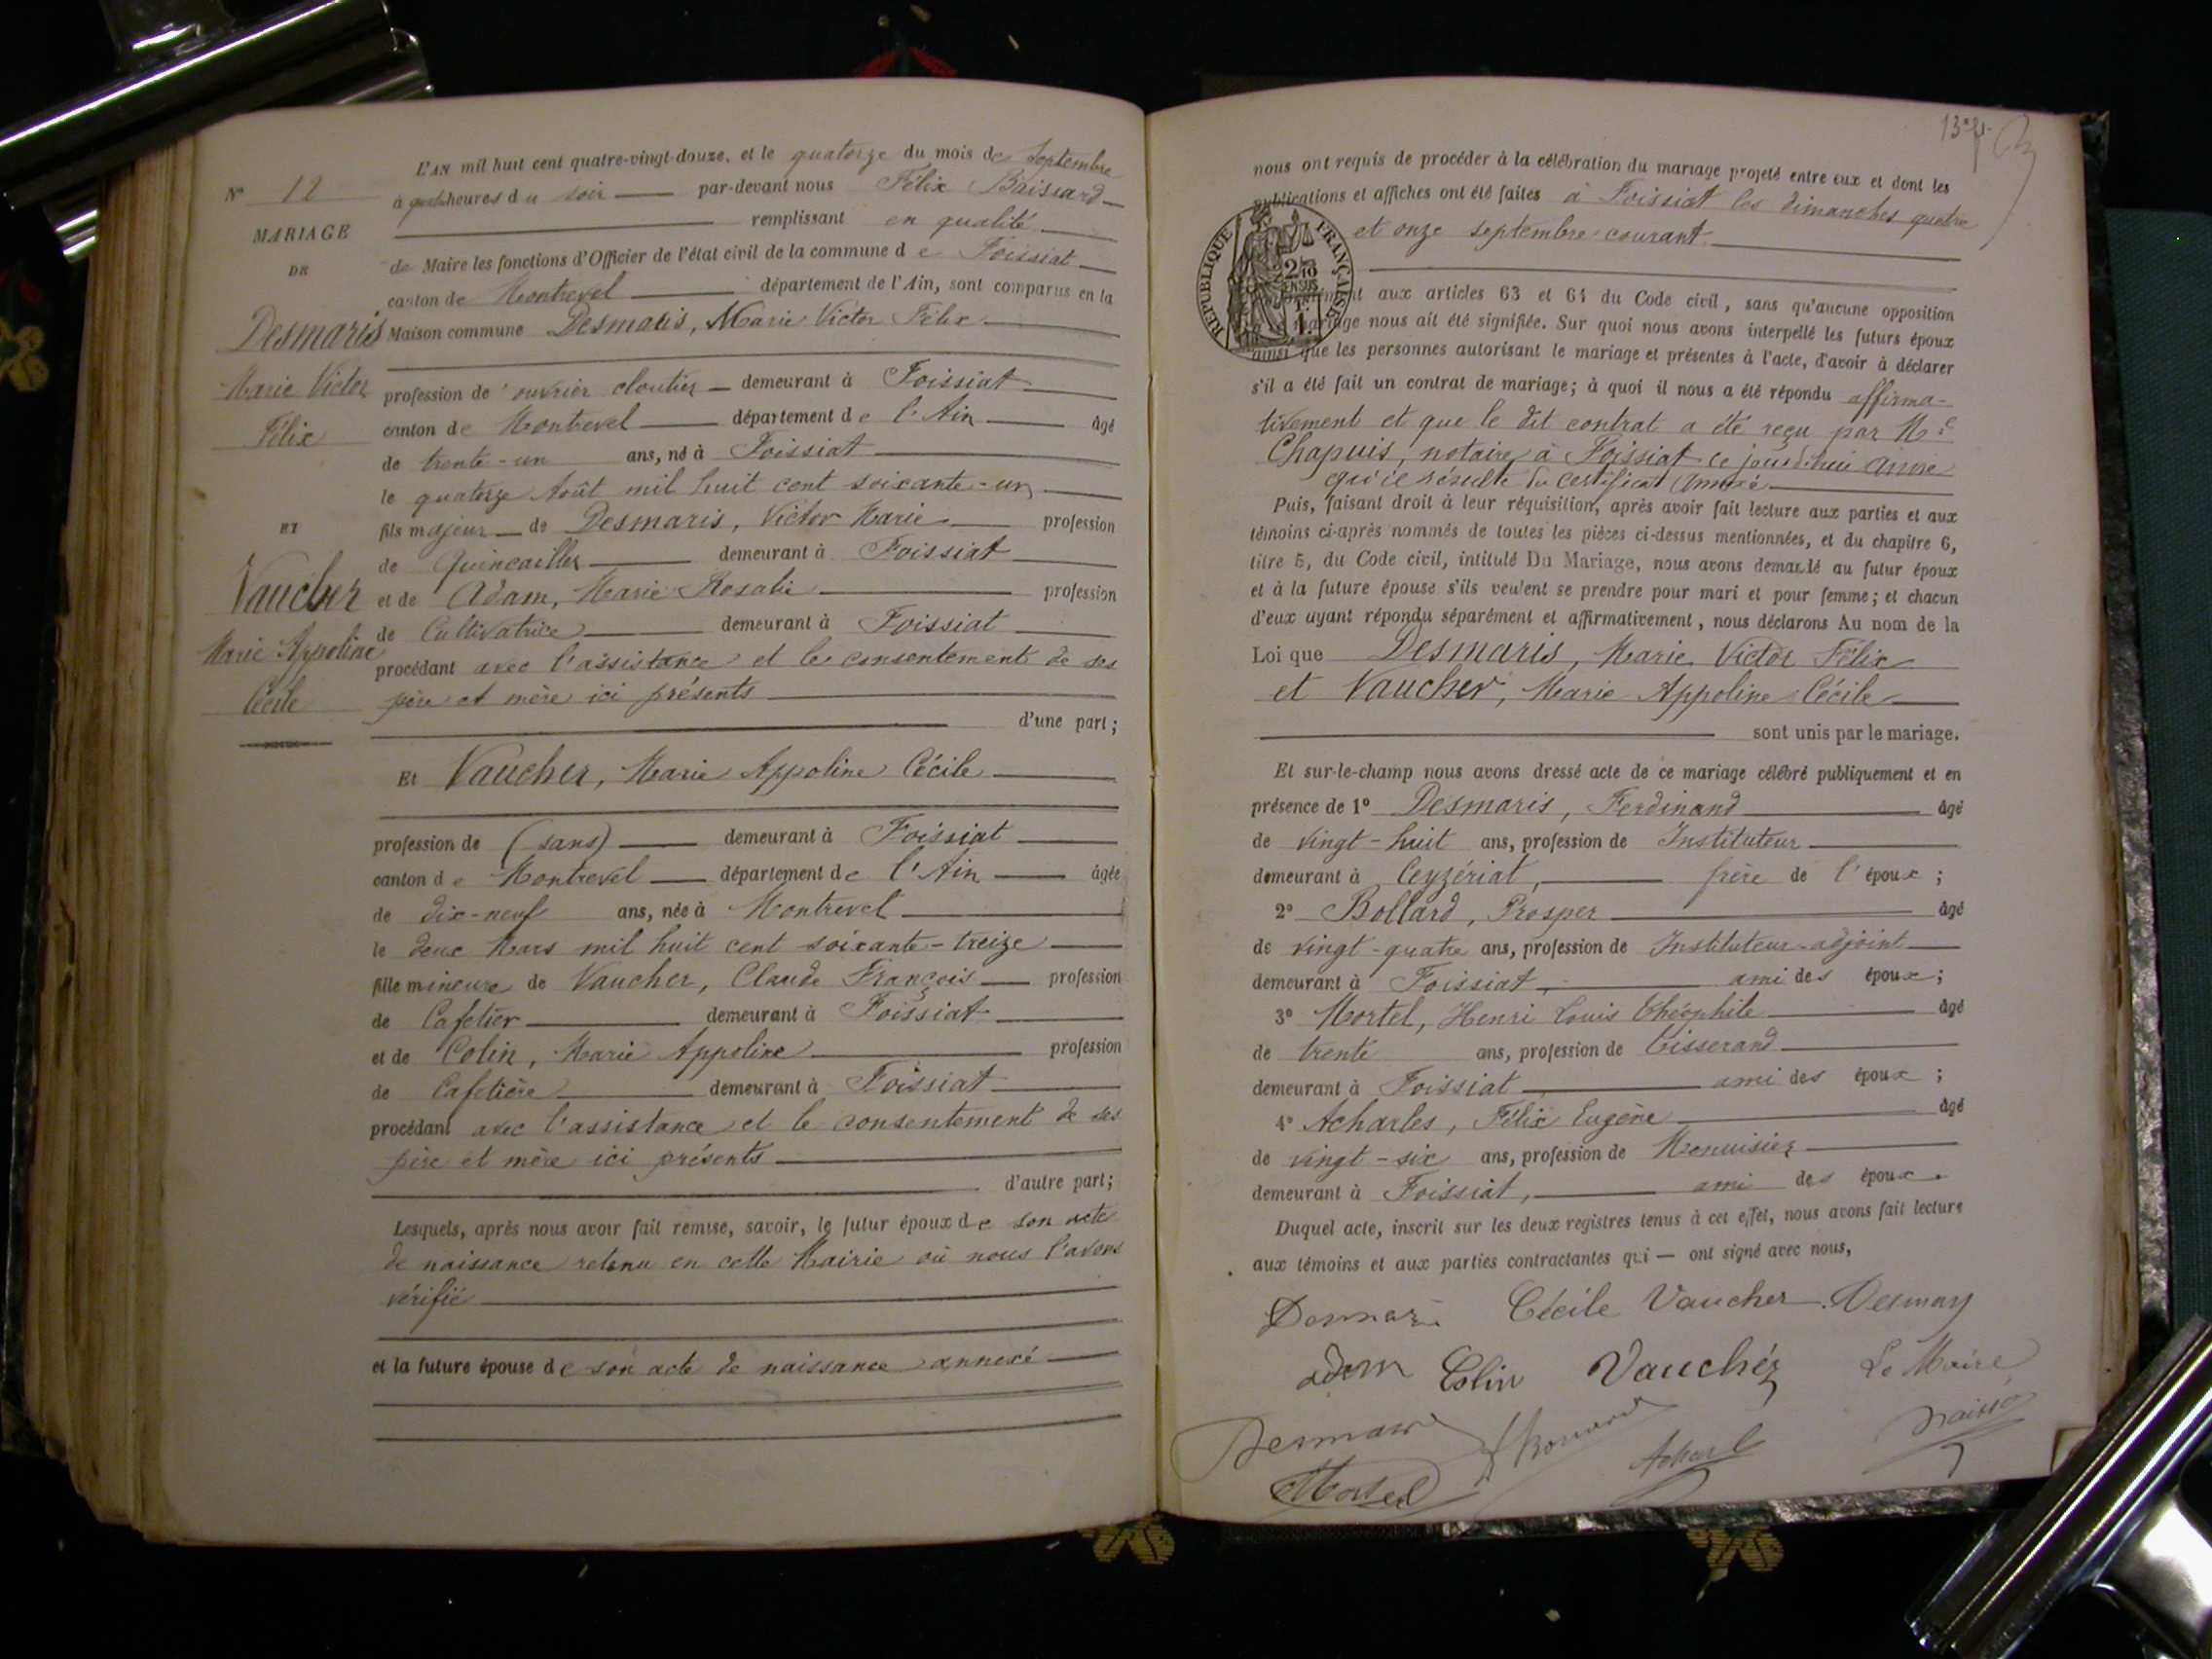 N° 12
MARIAGE
DE
Desmaris
Marie Victor
Félix
ET
Vaucher
Marie Appoline
Cécile
L'AN mil huit cent quatre-vingt-douze, et le quatorze du mois de Septembre
à heures du soir par-devant nous Félix Baissard
remplissant en qualité
de Maire les fonctions d'Officier de l'état civil de la commune de Foissiat
canton de Montrevel département de l'Ain, sont comparus en la
Maison commune Desmaris, Marie Victor Félix
profession de ouvrier cloutier demeurant à Foissiat
canton de Montrevel département de l'Ain âgé
de trente-un ans, né à Foissiat
le quatorze Août mil huit cent soixante-un
fils majeur de Desmaris, Victor Marie profession
de Quincailler demeurant à Foissiat
et de Adam, Marie Rosalie profession
de Cultivatrice demeurant à Foissiat
procédant avec l'assistance et le consentement de ses
père et mère ici présents
d'une part;
Et Vaucher, Marie Appoline Cécile
profession de (sans) demeurant à Foissiat
canton de Montrevel département de l'Ain âgée
de dix-neuf ans, née à Montrevel
le deux Mars mil huit cent soixante-treize
fille mineure de Vaucher, Claude François profession
de Cafetier demeurant à Foissiat
et de Colin, Marie Appoline profession
de Cafetière demeurant à Foissiat
procédant avec l'assistance et le consentement de ses
père et mère ici présents
d'autre part;
Lesquels, après nous avoir fait remise, savoir, le futur époux de son acte
de naissance retenu en cette Mairie où nous l'avons
vérifié
et la future épouse de son acte de naissance annexé
nous ont requis de procéder à la célébration du mariage projeté entre eux et dont les
publications et affiches ont été faites à Foissiat les dimanches quatre
et onze septembre courant
RÉPUBLIQUE FRANÇAISE
aux articles 63 et 64 du Code civil, sans qu'aucune opposition
mariage nous ait été signifiée. Sur quoi nous avons interpellé les futurs époux
ainsi que les personnes autorisant le mariage et présentes à l'acte, d'avoir à déclarer
s'il a été fait un contrat de mariage; à quoi il nous a été répondu affirma-
tivement et que le dit contrat a été reçu par Me
Chapuis, notaire à Foissiat ce jourd'hui ainsi
qu'il résulte du certificat annexé
Puis, faisant droit à leur réquisition, après avoir fait lecture aux parties et aux
témoins ci-après nommés de toutes les pièces ci-dessus mentionnées, et du chapitre 6,
titre 5, du Code civil, intitulé Du Mariage, nous avons demandé au futur époux
et à la future épouse s'ils veulent se prendre pour mari et pour femme; et chacun
d'eux ayant répondu séparément et affirmativement, nous déclarons Au nom de la
Loi que Desmaris, Marie Victor Félix
et Vaucher, Marie Appoline Cécile
sont unis par le mariage.
Et sur-le-champ nous avons dressé acte de ce mariage célébré publiquement et en
présence de 1° Desmaris, Ferdinand âgé
de vingt-huit ans, profession de Instituteur
demeurant à Ceyzériat, frère de l'époux;
2° Bollard, Prosper âgé
de vingt-quatre ans, profession de Instituteur-adjoint
demeurant à Foissiat, ami des époux;
3° Mortel, Henri Louis Théophile âgé
de trente ans, profession de Tisserand
demeurant à Foissiat ami des époux;
4° Acharles, Félix Eugène âgé
de vingt-six ans, profession de Menuisier
demeurant à Foissiat, ami des époux.
Duquel acte, inscrit sur les deux registres tenus à cet effet, nous avons fait lecture
aux témoins et aux parties contractantes qui — ont signé avec nous,
Cécile Vaucher
adam Colin Vauchér Le Maire